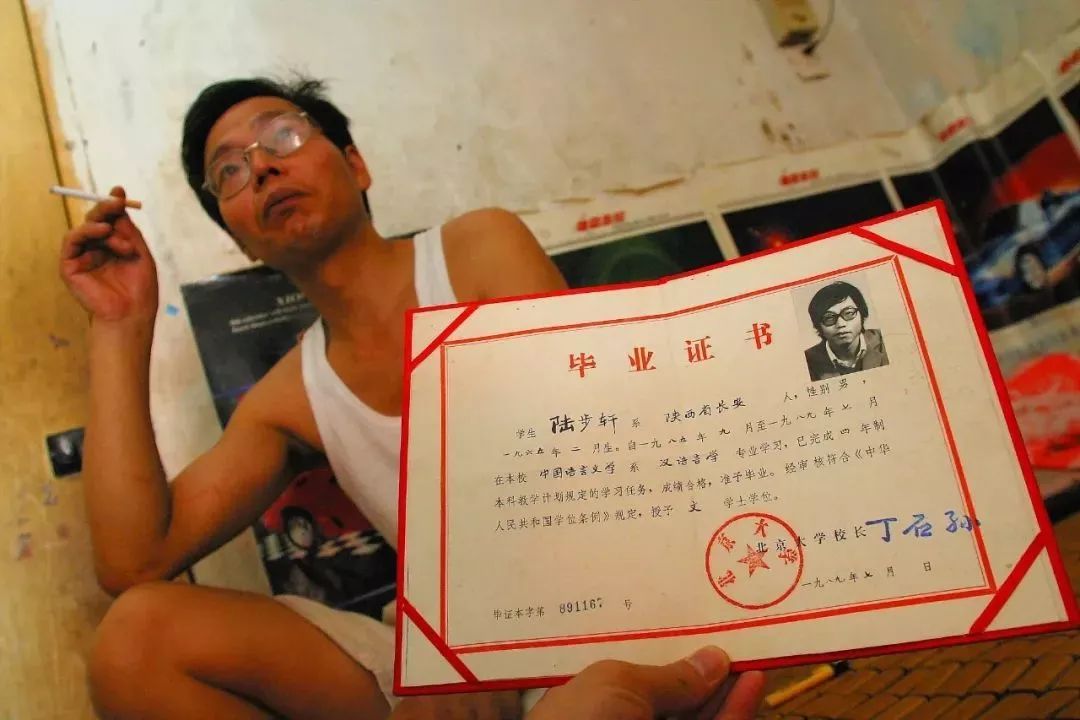 毕业证书
学生 陆步轩 系 陕西省长安 人，性别 男，
一九六五年 二 月生。自一九八五年 九 月至一九八九年 七 月
在本校 中国语言文学 系 汉语言学 专业学习，已完成 四 年制
本科教学计划规定的学习任务，成绩合格，准予毕业。经审核符合《中华
人民共和国学位条例》规定，授予 文 学士学位。
北京大学校长 丁石孙
北京大学
一九八九年 七 月 日
毕证本字第 891167 号